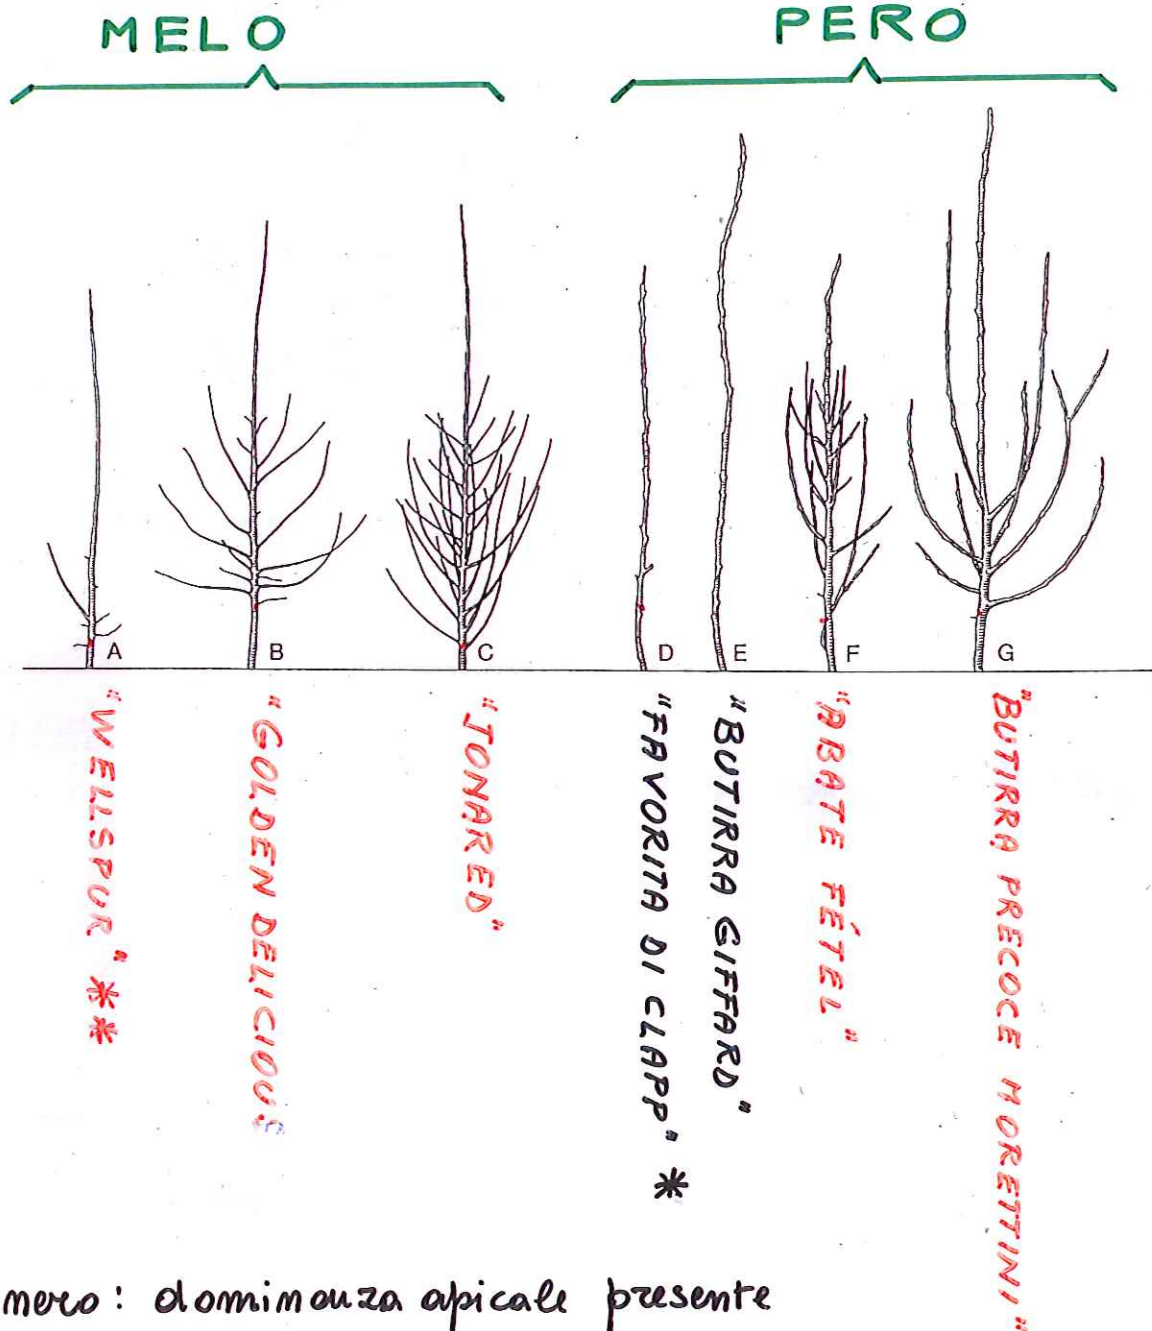 MELO
PERO
A
B
C
D
E
F
G
"WELLSPUR" **
"GOLDEN DELICIOUS
"JONARED"
"FAVORITA DI CLAPP" *
"BUTIRRA GIFFARD"
"ABATE FÉTEL"
"BUTIRRA PRECOCE MORETTINI"
nero: dominanza apicale presente